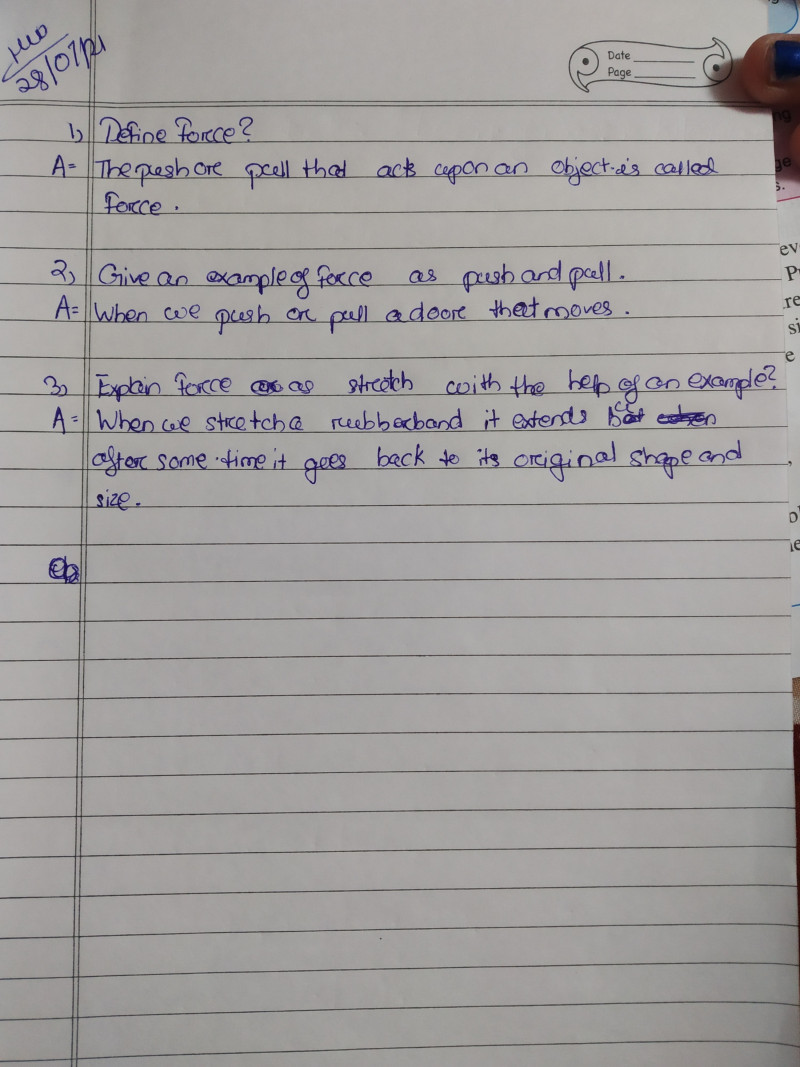 HW
28/07/21
Date
Page
1) Define force?
A= The push or pull that acts upon an object is called
force.
2) Give an example of force as push and pull.
A= When we push or pull a door that moves.
3) Explain force as stretch with the help of an example?
A= When we stretch a rubberband it extends but
after some time it goes back to its original shape and
size.